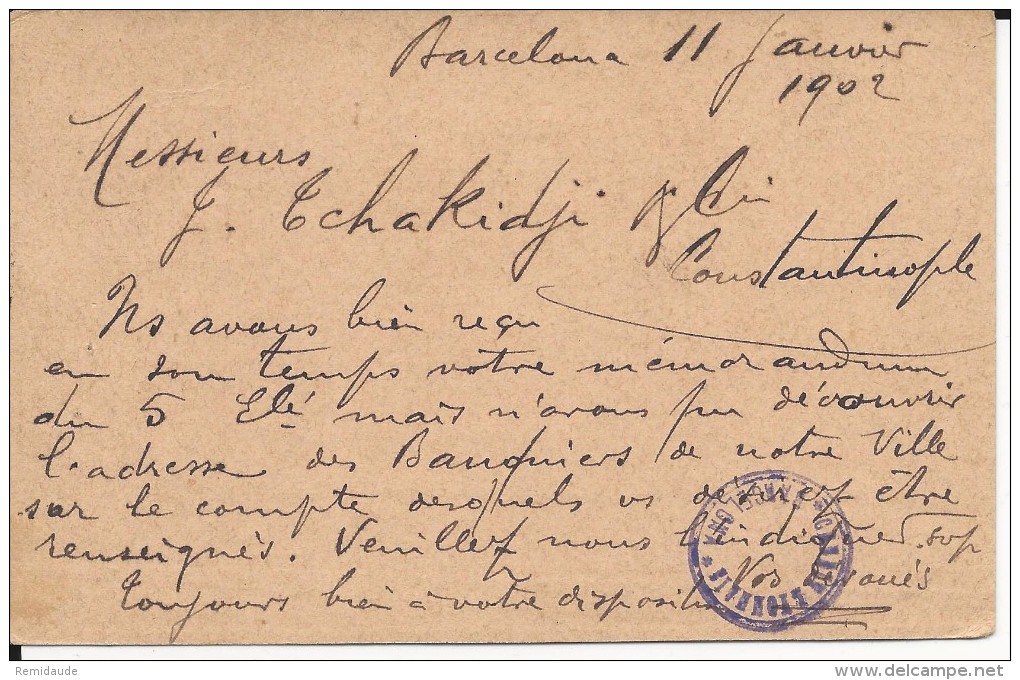 Barcelona 11 Janvier
1902
Messieurs
J. Tchakidji & Cie
Constantinople
Ns avons bien reçu
en son temps votre mémorandum
du 5 mais n'avons pu découvrir
l'adresse des Banquiers de notre Ville
sur le compte desquels vs désirez être
renseignés. Veuillez nous l'indiquer svp
Toujours bien à votre disposition Vos dévoués
LYONNAIS * BARCELONA
Remidaude
www.delcampe.net